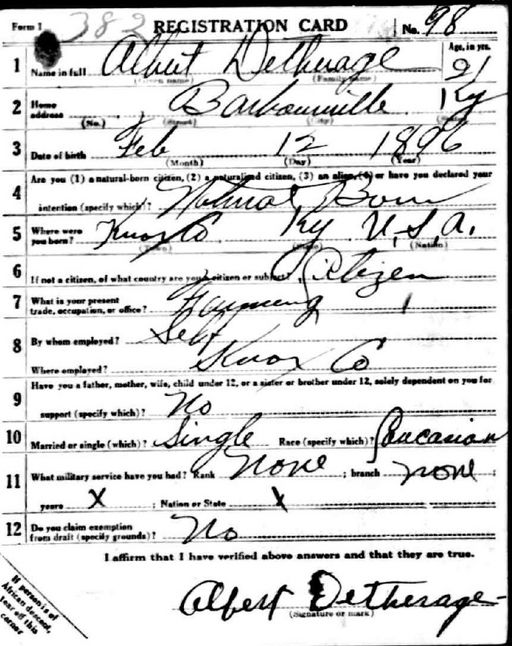 Form 1 382 REGISTRATION CARD No. 98
1 Name in full Albert Detherage Age, in yrs. 21
(Given name) (Family name)
2 Home address Barbourville Ky
(No.) (Street) (City) (State)
3 Date of birth Feb 12 1896
(Month) (Day) (Year)
4 Are you (1) a natural-born citizen, (2) a naturalized citizen, (3) an alien, (4) or have you declared your
intention (specify which)? Natural Born
5 Where were you born? Knox Co Ky U.S.A.
(Town) (State) (Nation)
6 If not a citizen, of what country are you a citizen or subject? Citizen
7 What is your present trade, occupation, or office? Farming
8 By whom employed? Self
Where employed? Knox Co
9 Have you a father, mother, wife, child under 12, or a sister or brother under 12, solely dependent on you for
support (specify which)? No
10 Married or single (which)? Single Race (specify which)? Caucasian
11 What military service have you had? Rank none ; branch none ;
years X ; Nation or State X
12 Do you claim exemption from draft (specify grounds)? No
I affirm that I have verified above answers and that they are true.
Albert Detherage
(Signature or mark)
If person is of
African descent,
tear off this
corner